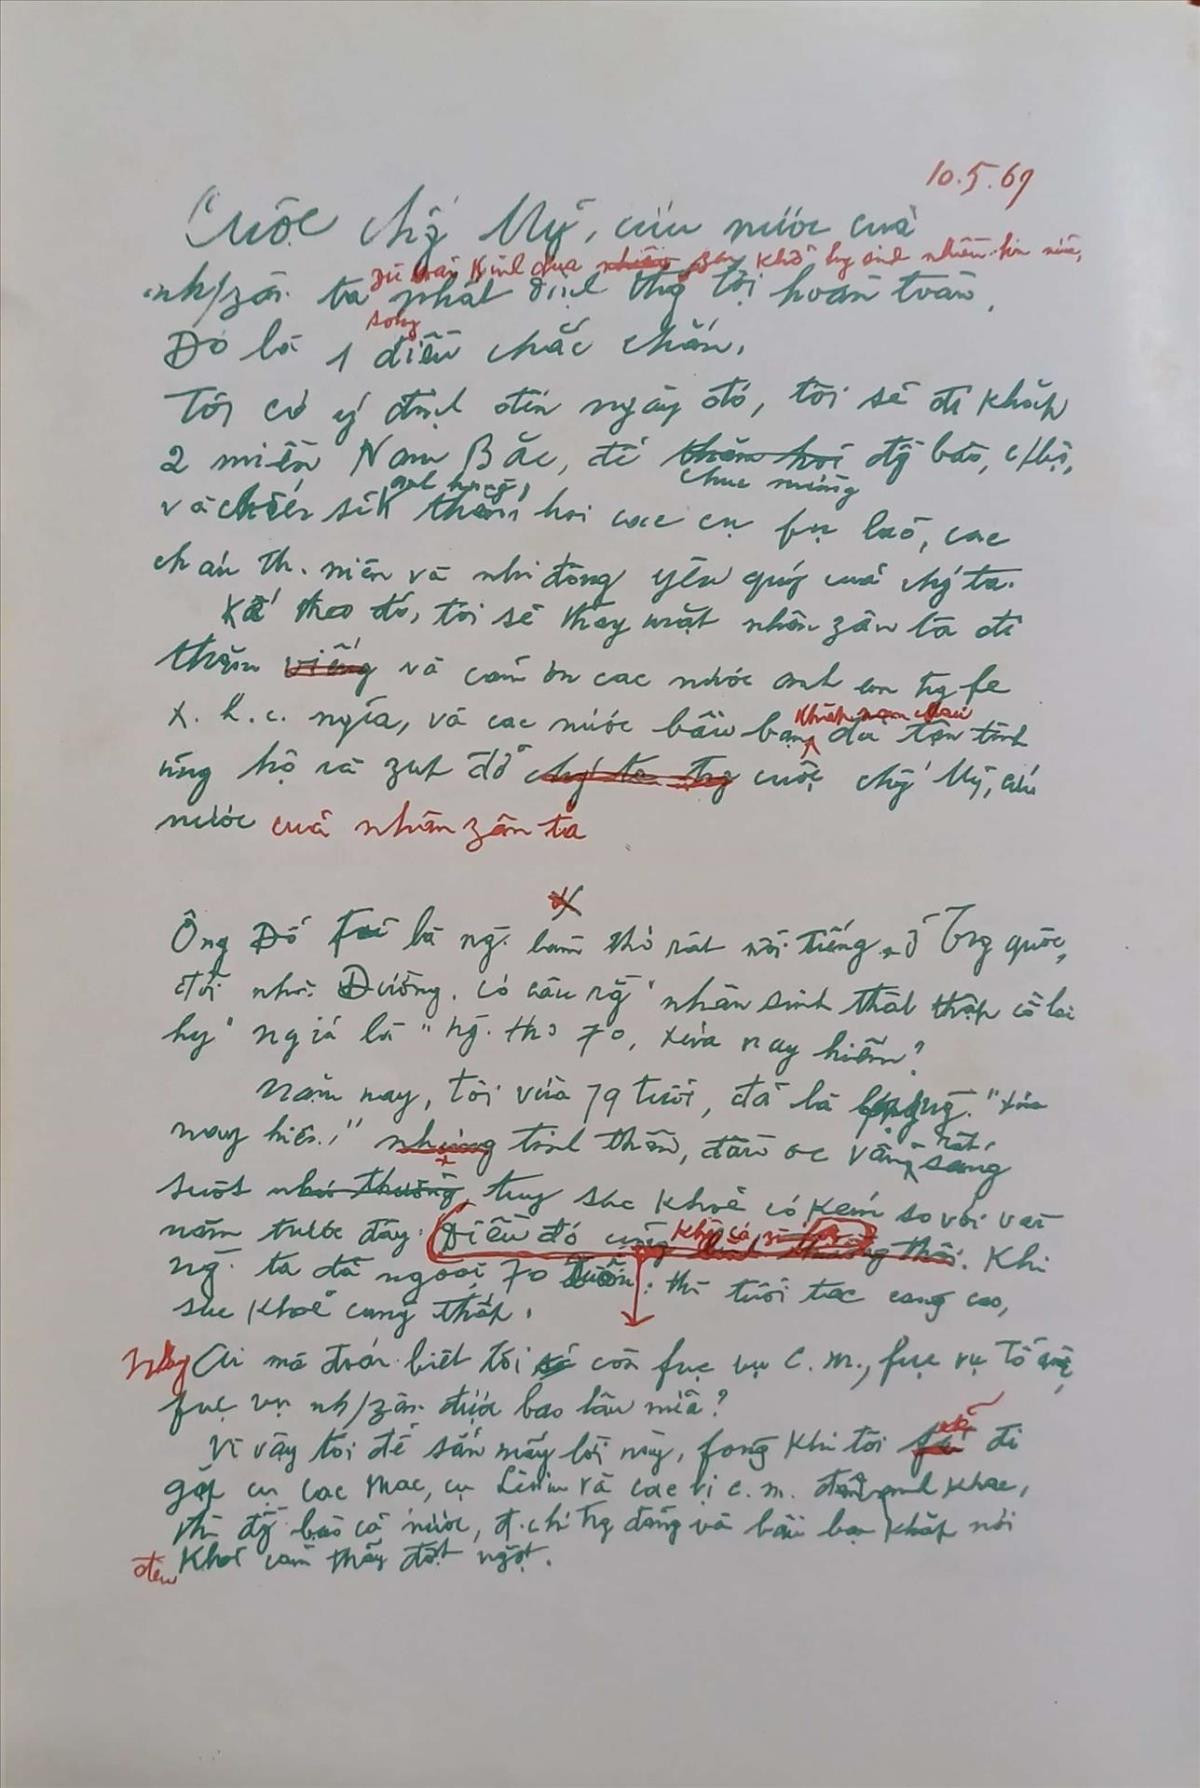 10.5.69
Cuộc chg' Mỹ, cứu nước của
zù fải kinh qua zan khổ hy sinh nhiều hơn nữa,
nh/zân ta nhất định thg lợi hoàn toàn.
song
Đó là 1 điều chắc chắn.
Tôi có ý định đến ngày đó, tôi sẽ đi khắp
2 miền Nam Bắc, để thăm hỏi đg bào, c/bộ,
chúc mừng
và chiến sĩ anh hùng, thăm hỏi các cụ fụ lão, các
cháu th. niên và nhi đồng yêu quý của chg ta.
Kế theo đó, tôi sẽ thay mặt nhân zân ta đi
thăm viếng và cảm ơn các nước anh em tg fe
khắp năm châu
x. h. c. ngĩa, và các nước bầu bạn đã tận tình
ủng hộ và zúp đỡ chg ta trg cuộc chg' Mỹ, cứu
nước của nhân zân ta
x
Ông Đỗ Fủ là ng. làm thơ rất nổi tiếng ở Trg quốc,
đời nhà Đường. có câu rg "nhân sinh thất thập cổ lai
hy" ngĩa là "ng. thọ 70, xưa nay hiếm"
Năm nay, tôi vừa 79 tuổi, đã là lớp ng. "xưa
nay hiếm" nhưng tinh thần, đầu óc vẫn rất sáng
suốt như thường, tuy sức khoẻ có kém so với vài
năm trước đây. Điều đó cũg không có gì lạ bình thường thôi. Khi
ng. ta đã ngoài 70 xuân, thì tuổi tác càng cao,
sức khoẻ càng thấp.
Nhưg Ai mà đoán biết tôi sẽ còn fục vụ c. m., fục vụ Tổ quốc,
fục vụ nh/zân được bao lâu nữa?
Vì vậy tôi để sẵn mấy lời này, fòng khi tôi sẽ đi
gặp cụ Các Mác, cụ Lênin và các vị c. m. đàn anh khác,
thì đg bào cả nước, đ. chí trg đảng và bầu bạn khắp nơi
đều khỏi cảm thấy đột ngột.